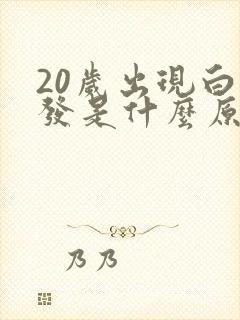 20歲出現白
發是什麼原
乃乃